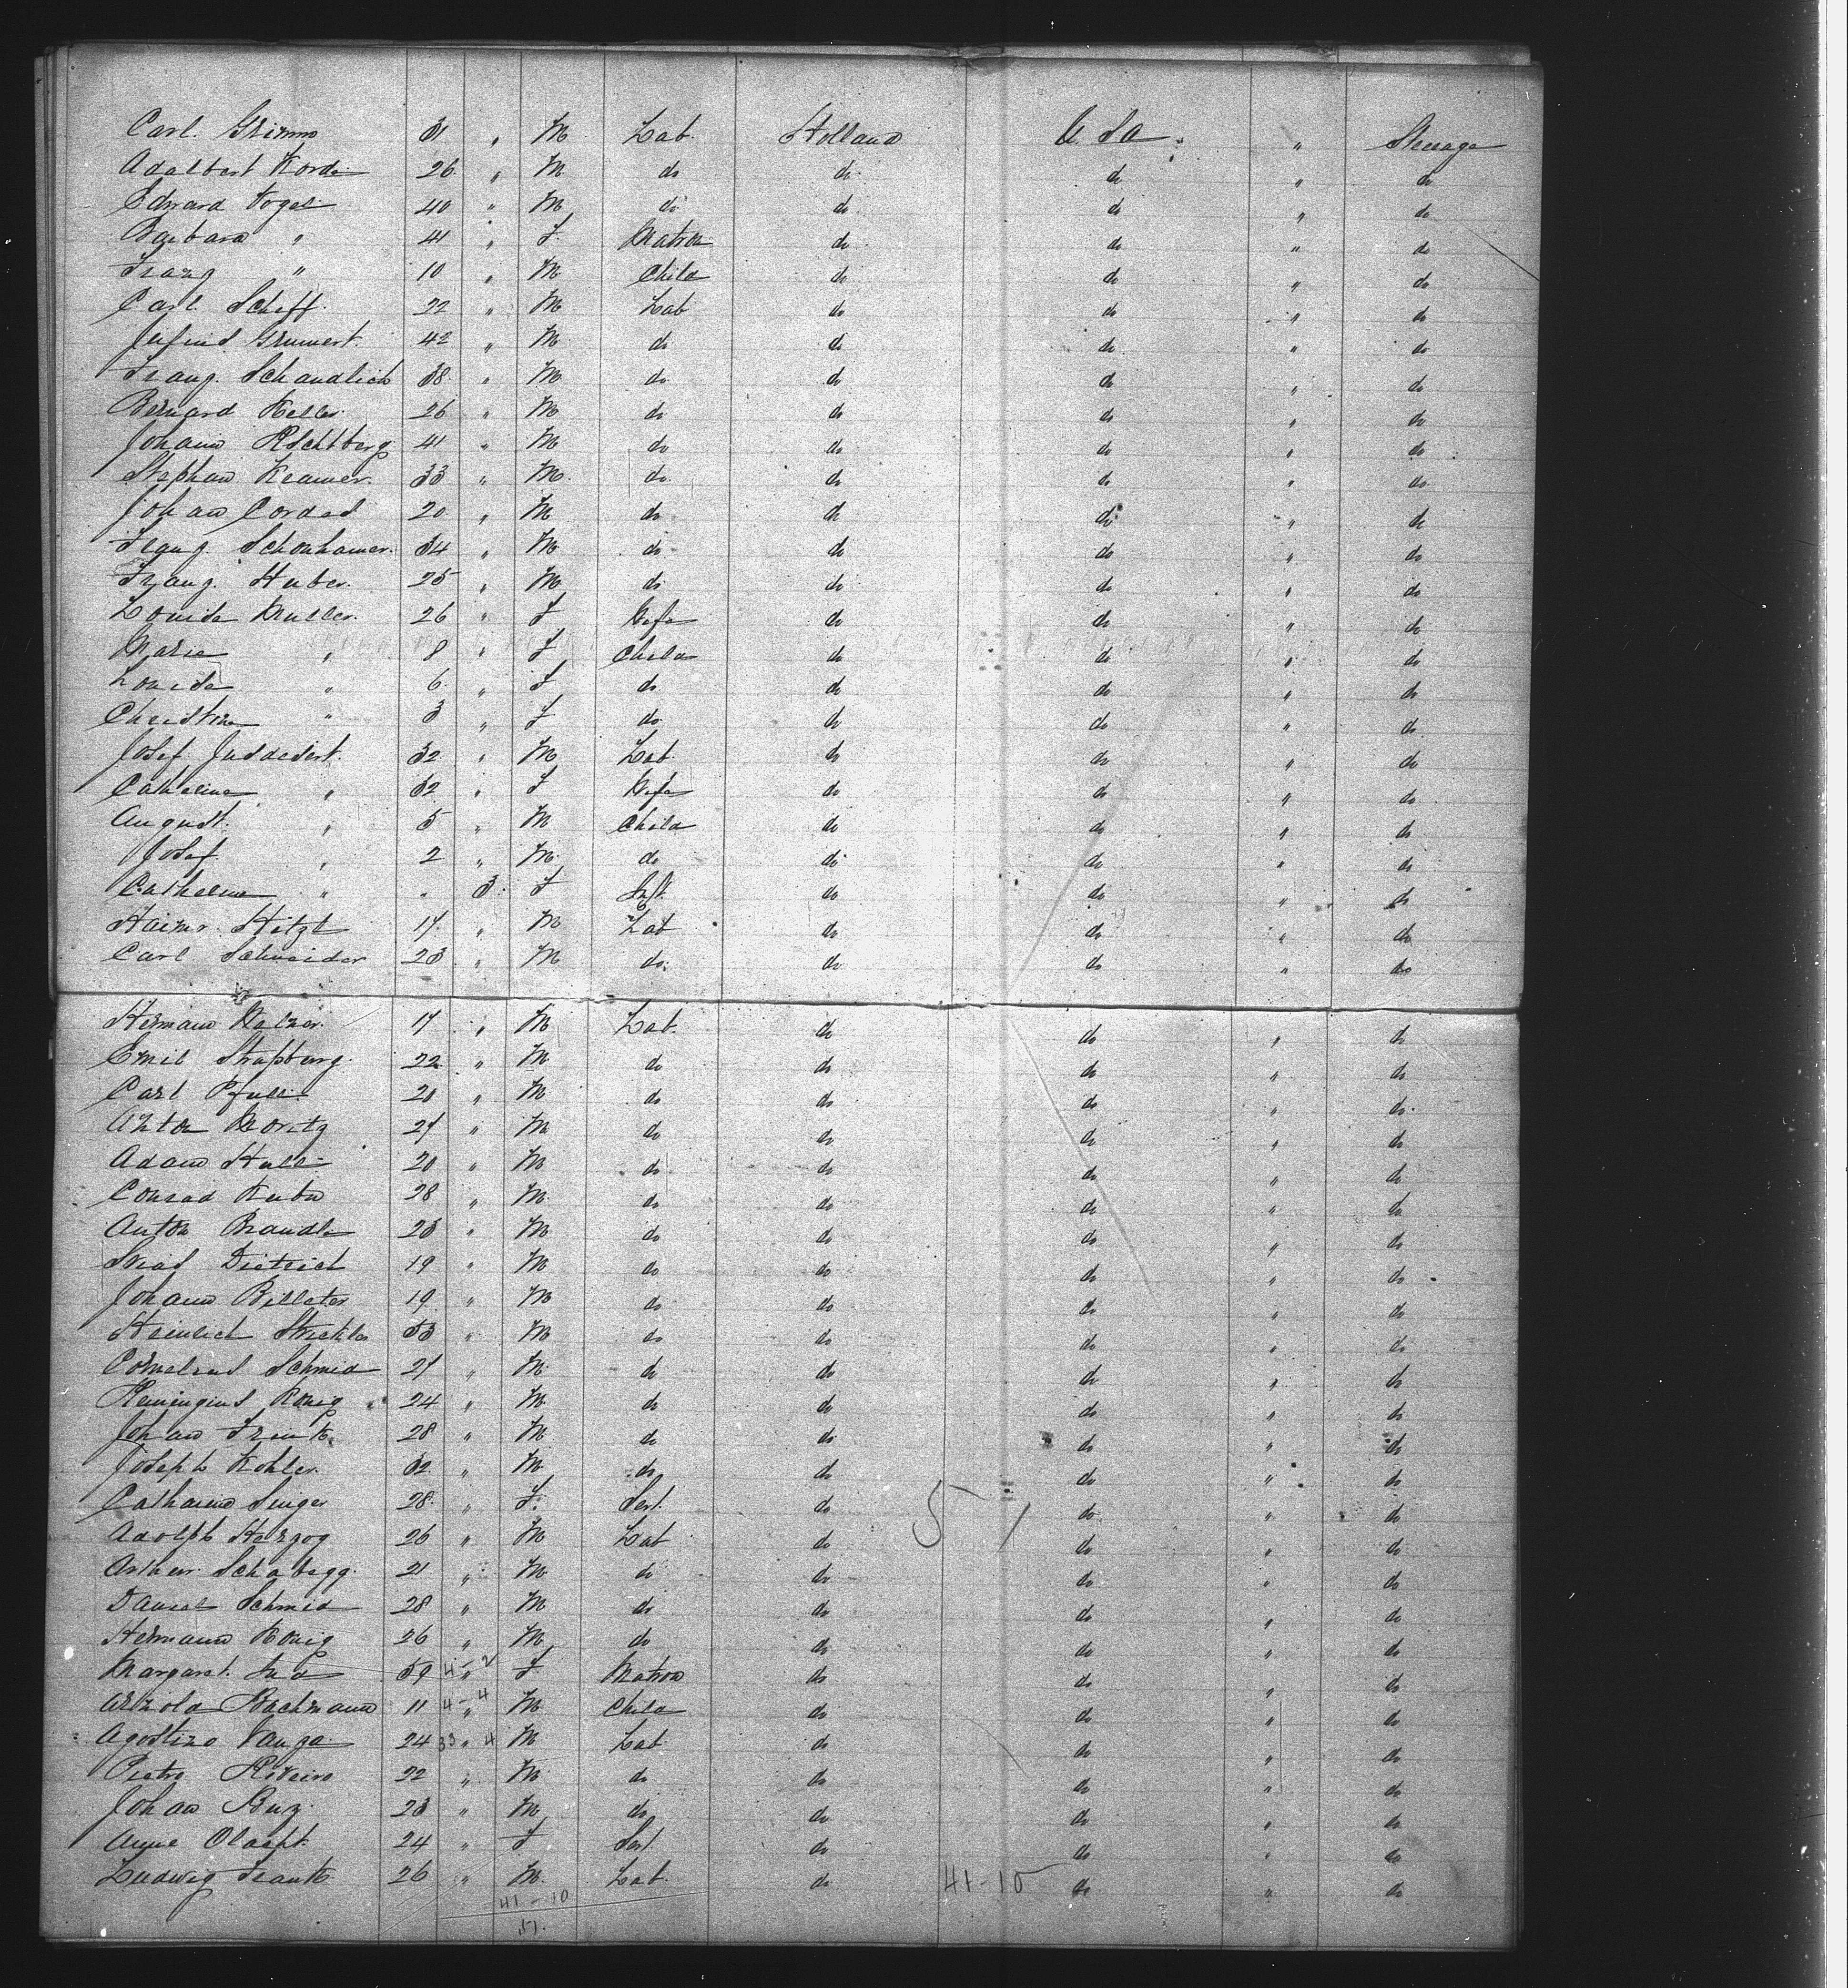 Carl. Grimm 31 " M Lab. Holland U. Sa " Steerage
Adalbert Korde 26 " M do do do " do
Edward Vogel 40 " M do do do " do
Barbara " 41 " F. Matron do do " do
Franz " 10 " M Child do do " do
Carl Scheff. 22 " M Lab do do " do
Grunert. 42 " M do do do " do
Franz. Schandlich 38 " M do do do " do
Bernard Keller 26 " M do do do " do
Johann Rechtberg 41 " M do do do " do
Stephan Kramer. 33 " M. do do do " do
Johan Cordes 20 " M do do do " do
Franz. Schonhamer. 34 " M do do do " do
Franz. Huber. 25 " M do do do " do
Louise Muller. 26 " F Wife do do " do
Marie " 8 " F Child do do " do
Louise " 6 " F do do do " do
Christine " 3 " F do do do " do
Josef 32 " M Lab. do do " do
Catherine " 32 " F Wife do do " do
August. " 5 " M Child do do " do
Josef " 2 " M do do do " do
Catherine " " 3 F Inft. do do " do
Heinr. Hitzl 17 " M Lab do do " do
Carl Schneider 23 " M do do do " do
Hermann Welzer. 17 " M Lab. do do " do
Emil Straßburg. 22 " M do do do " do
Carl Pfull 20 " M do do do " do
Anton Moritz 27 " M do do do " do
Adam Hull 20 " M do do do " do
Conrad Kuhn 28 " M do do do " do
Anton Brandle 23 " M do do do " do
Dietrich 19 " M do do do " do
Johann Billeter 19 " M do do do " do
Heinrich Strickler 53 " M do do do " do
Cornelius Schmid 27 " M do do do " do
Remingius König 24 " M do do do " do
Johan Frink. 28 " M do do do " do
Joseph Kohler. 32 " M do do do " do
Catharina Singer 28 " F. Sert. do do " do
51
Adolph Herzog 26 " M Lab do do " do
Arthur Schabegg. 21 " M do do do " do
Daniel Schmid 28 " M do do do " do
Hermann König 26 " M do do do " do
Margaret. 59 4-2 " F Matron do do " do
Arnold Bachmann 11 4-4 " M Child do do " do
Agostino Vanza 24 33 " 4 M Lab do do " do
Pietro 22 " M do do do " do
Johan 23 " M do do do " do
Anne 24 " F Sert do do " do
Ludwig Frank 26 " M. Lab. do 41-10 do " do
41-10
51.